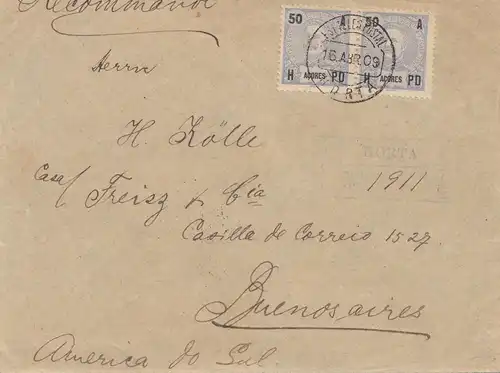 Recommandé
50 A 50 A
16 ABR 09
H AÇORES PD H AÇORES PD
HORTA
Herrn
H. Kölle
HORTA
Casa Freisz & Cia 1911
Casilla de Correio 1527
Buenosaires
America do Sul.